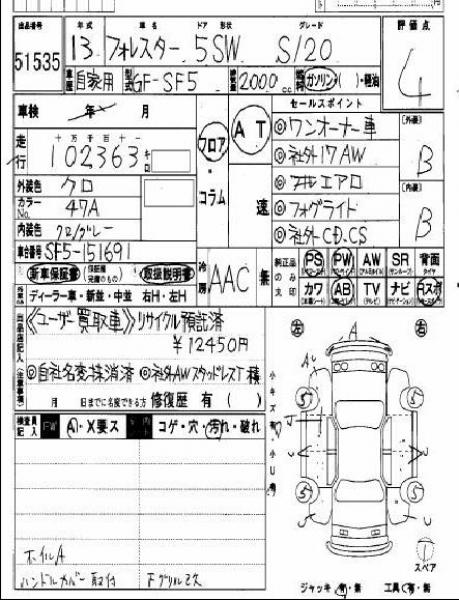 出品番号 年式 車名 ドア 形状 グレード 評価点
51535 13 フォレスター 5SW S/20 4
車歴 自家用 型式 GF-SF5 排気量 2000cc 燃料 ガソリン・軽油
車検 年 月 フロア・コラム AT 速 セールスポイント
走行 十万千百十一 102363 キロ
◎ワンオーナー車 [外装] B
◎社外17AW
◎フルエアロ [内装] B
◎フォグライト
◎社外CD.CS
外装色 クロ
カラーNo. 47A
内装色 クロ/グレー
車台番号 SF5-151691
冷房 AAC 無
純正品のみ○印 PS PW AW SR 背面タイヤ
カワ AB TV ナビ Rスポ
新車保証書 取扱説明書
ディーラー車・新並・中並 右H・左H
出品店記入(注意事項)
《ユーザー買取車》リサイクル預託済
¥12450円
◎自社名変・抹消済 ◎社外AWスタッドレスT積
月 日までに名変できる方 修復歴 有( )
検査員記入 A・X要ス コゲ・穴・汚れ・破れ
ホイルA
ハンドルカバー取付 FグリルエX
左 A 右
小キズ有 小U有
A U U U U
スペア
ジャッキ 有・無 工具 有・無